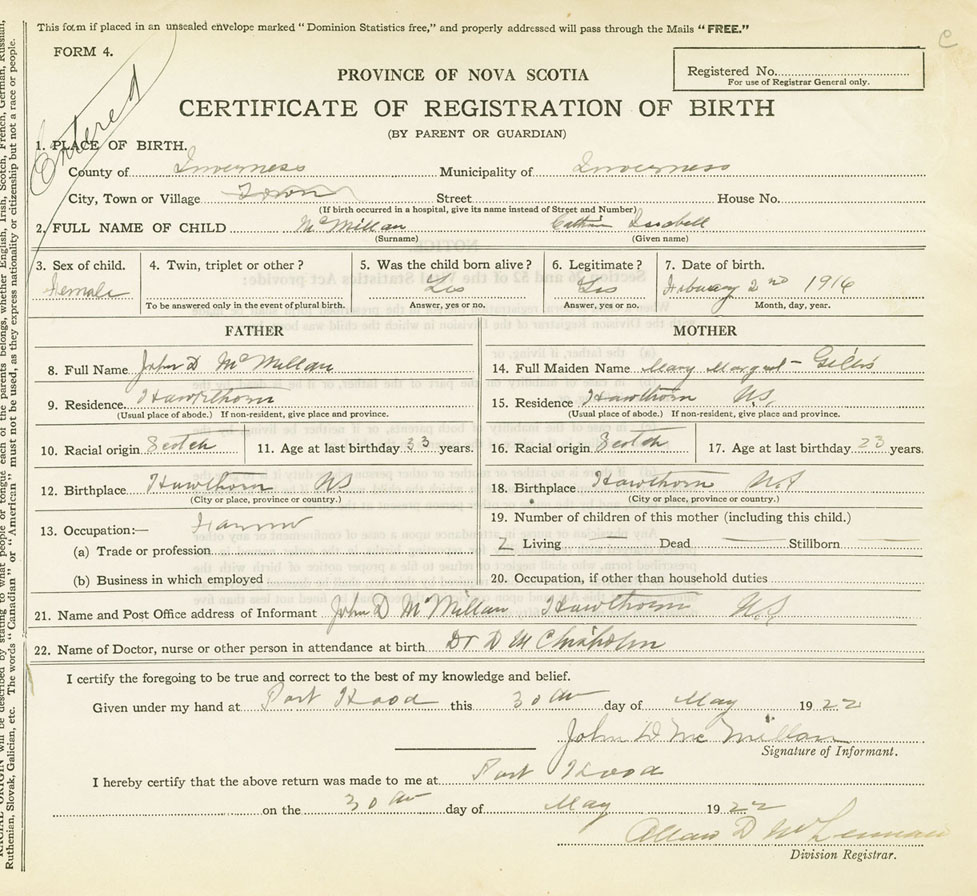 This form if placed in an unsealed envelope marked "Dominion Statistics free," and properly addressed will pass through the Mails "FREE."
FORM 4.
Entered
PROVINCE OF NOVA SCOTIA
Registered No.
For use of Registrar General only.
CERTIFICATE OF REGISTRATION OF BIRTH
(BY PARENT OR GUARDIAN)
1. PLACE OF BIRTH.
County of Inverness Municipality of Inverness
City, Town or Village Town Street House No.
(If birth occurred in a hospital, give its name instead of Street and Number)
2. FULL NAME OF CHILD McMillan
(Surname) (Given name)
3. Sex of child. Female
4. Twin, triplet or other?
To be answered only in the event of plural birth.
5. Was the child born alive? Yes
Answer, yes or no.
6. Legitimate? Yes
Answer, yes or no.
7. Date of birth. February 2nd 1916
Month, day, year.
FATHER
8. Full Name John D McMillan
9. Residence. Hawthorn
(Usual place of abode.) If non-resident, give place and province.
10. Racial origin Scotch 11. Age at last birthday 33 years.
12. Birthplace Hawthorn NS
(City or place, province or country.)
13. Occupation:— Farmer
(a) Trade or profession
(b) Business in which employed
MOTHER
14. Full Maiden Name Mary Margret Gillis
15. Residence Hawthorn NS
(Usual place of abode.) If non-resident, give place and province.
16. Racial origin Scotch 17. Age at last birthday 23 years.
18. Birthplace Hawthorn NS
(City or place, province or country.)
19. Number of children of this mother (including this child.)
2 Living Dead Stillborn
20. Occupation, if other than household duties
21. Name and Post Office address of Informant John D McMillan Hawthorn NS
22. Name of Doctor, nurse or other person in attendance at birth Dr D M Chisholm
I certify the foregoing to be true and correct to the best of my knowledge and belief.
Given under my hand at Port Hood this 30 day of May 1922
John D McMillan
Signature of Informant.
I hereby certify that the above return was made to me at Port Hood
on the 30 day of May 1922
Allan D McLennan
Division Registrar.
Ruthenian, Slovak, Galician, etc. The words "Canadian" or "American" must not be used, as they express nationality or citizenship but not a race or people.